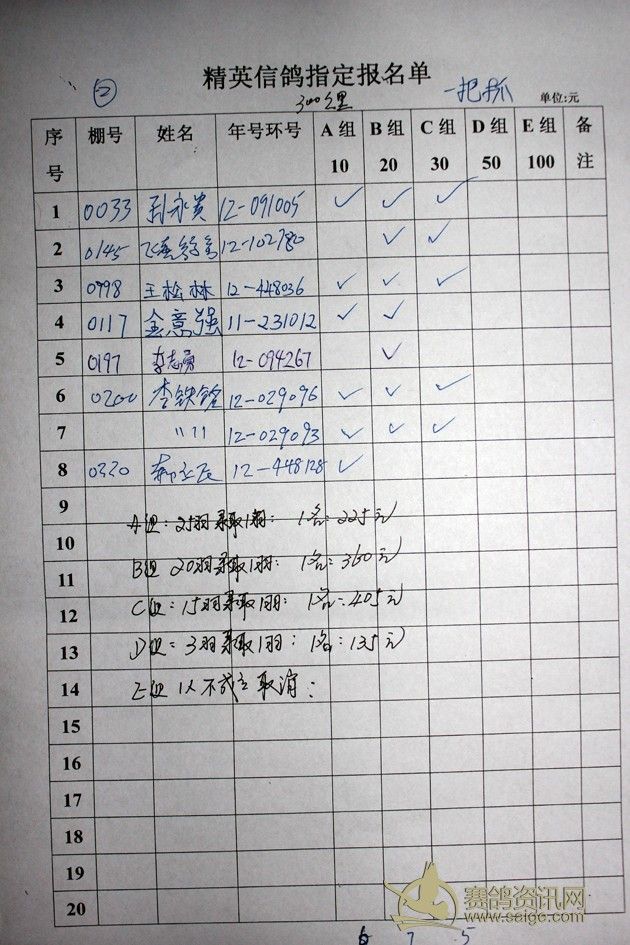 精英信鸽指定报名单
② 300公里 一把抓 单位:元
序号 棚号 姓名 年号环号 A组 10 B组 20 C组 30 D组 50 E组 100 备注
1 0033 刘永贵 12-091005 ✓ ✓ ✓
2 0145 12-102780 ✓ ✓
3 0998 王松林 12-448036 ✓ ✓ ✓
4 0117 金意强 11-231012 ✓ ✓
5 0197 李志勇 12-094267 ✓
6 0200 李铁铨 12-029096 ✓ ✓ ✓
7 〃 〃 12-029093 ✓ ✓ ✓
8 0320 12-448128 ✓
9
A组:25羽录取1羽: 1名:225元
10
B组 20羽录取1羽: 1名:360元
11
C组:15羽录取1羽: 1名:405元
12
D组:3羽录取1羽: 1名:135元
13
E组 1人不成立取消:
14
15
16
17
18
19
20
6 7 5
赛鸽资讯网
www.saige.com